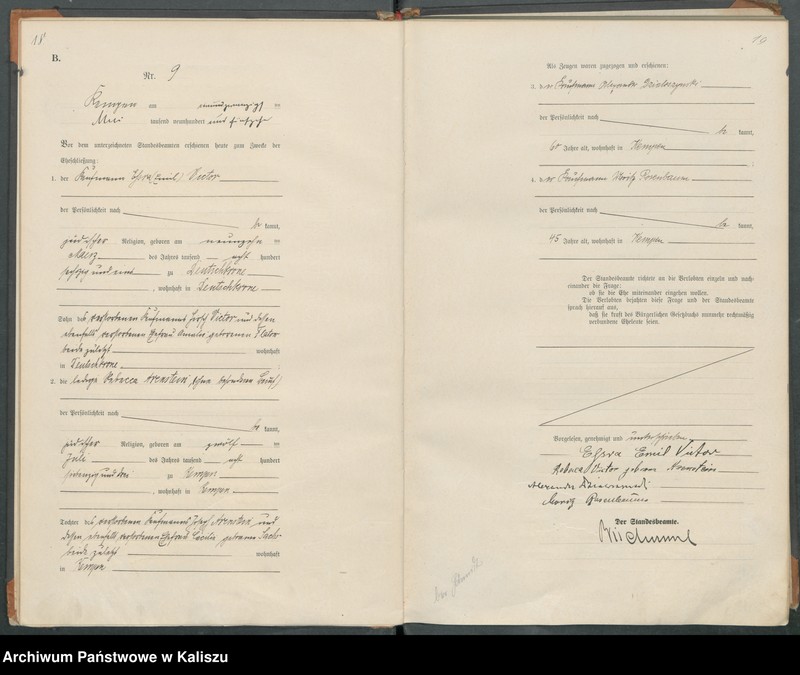 18
B.
Nr. 9
Kempen am neunundzwanzigsten
Mai tausend neunhundert und
Vor dem unterzeichneten Standesbeamten erschienen heute zum Zwecke der
Eheschließung:
1. der Kaufmann (Emil) Victor
der Persönlichkeit nach
be kannt,
jüdischer Religion, geboren am neunzehnten
März des Jahres tausend acht hundert
sechzig und eins zu Deutschkrone
, wohnhaft in Deutschkrone
Sohn des verstorbenen Kaufmanns Victor und dessen
ebenfalls verstorbenen Ehefrau geborenen
beide zuletzt wohnhaft
in Deutschkrone
2. die ledige Rebecca Arenstein, ohne besonderen Beruf
der Persönlichkeit nach
be kannt,
jüdischer Religion, geboren am zwölften
Juli des Jahres tausend acht hundert
siebenzig und drei zu Kempen
, wohnhaft in Kempen
Tochter des verstorbenen Kaufmanns Josef Arenstein und
dessen ebenfalls verstorbenen Ehefrau Cäcilie geborenen
beide zuletzt wohnhaft
in Kempen
19
Als Zeugen waren zugezogen und erschienen:
3. der Kaufmann Alexander
der Persönlichkeit nach
be kannt,
60 Jahre alt, wohnhaft in Kempen
4. der Kaufmann Moritz Rosenbaum
der Persönlichkeit nach
be kannt,
45 Jahre alt, wohnhaft in Kempen
Der Standesbeamte richtete an die Verlobten einzeln und nach-
einander die Frage:
ob sie die Ehe miteinander eingehen wollen.
Die Verlobten bejahten diese Frage und der Standesbeamte
sprach hierauf aus,
daß sie kraft des Bürgerlichen Gesetzbuchs nunmehr rechtmäßig
verbundene Eheleute seien.
Vorgelesen, genehmigt und unterschrieben
Emil Victor
Rebeca Victor geborn Arenstein
Alexander
Moritz Rosenbaum
Der Standesbeamte.
Archiwum Państwowe w Kaliszu